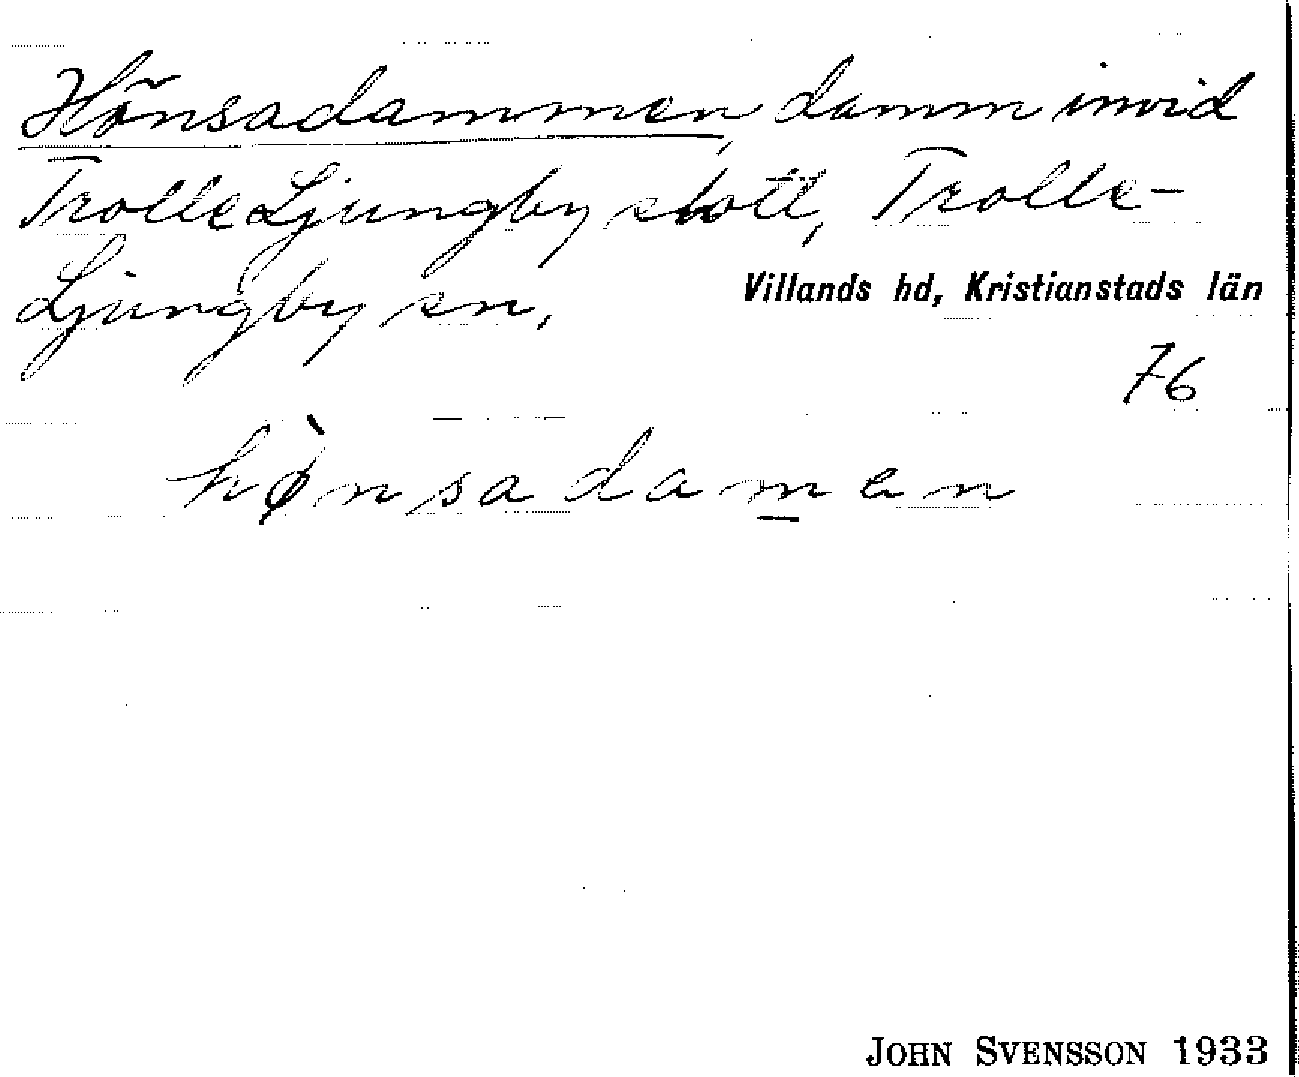 Hönsadammen, damm invid
Trolle Ljungby slott, Trolle-
Ljungby sn,
Villands hd, Kristianstads län
76
hø̀nsadam̲en
JOHN SVENSSON 1933